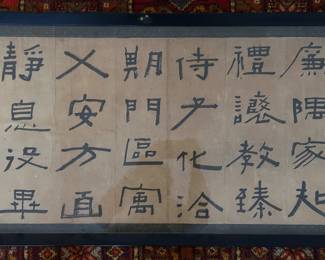 廉隅家起
禮讓教臻
侍化洽
期門區寓
乂安方直
靜息畢